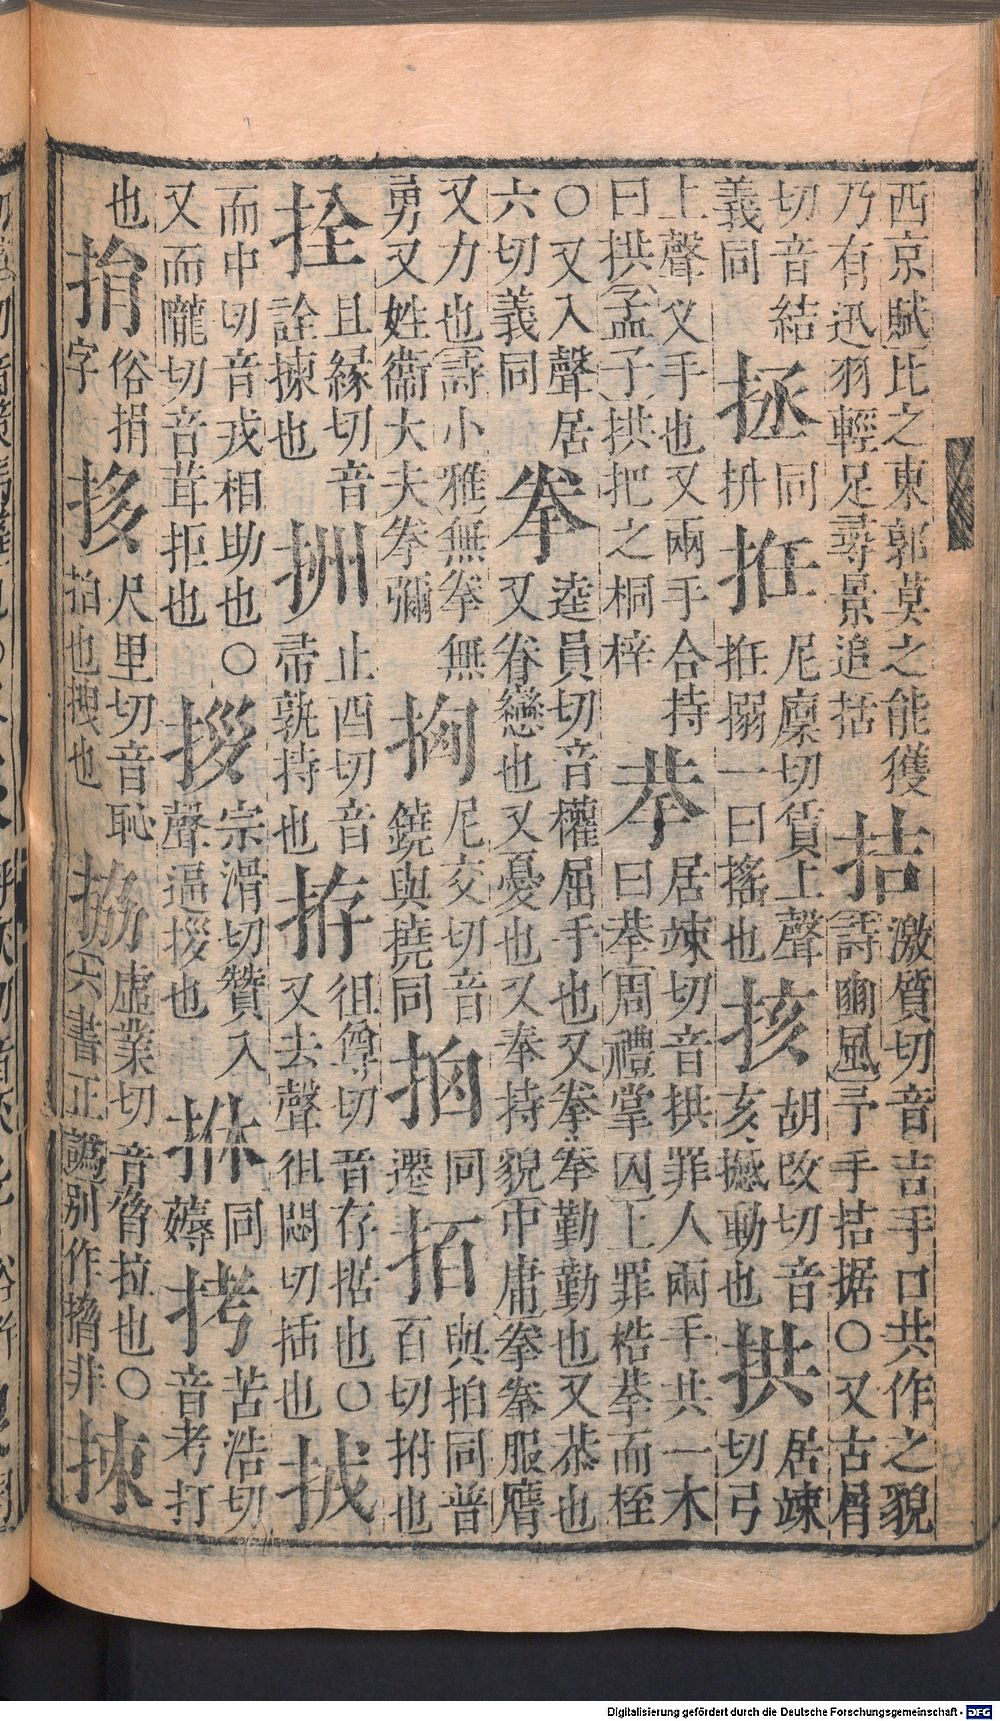 西京賦比之東郭莫之能獲
乃有迅羽輕足尋景追括
拮
激質切音吉手口共作之貌
詩豳風予手拮据○又古屑
切音結
義同
拯
同
拚
拰
尼廩切賃上聲
拰搦一曰搖也
㧡
胡改切音
亥撼動也
拱
居竦
切弓
上聲又手也又兩手合持
曰拱孟子拱把之桐梓
拲
居竦切音拱罪人兩手共一木
曰拲周禮掌囚上罪梏拲而桎
○又入聲居
六切義同
拳
逵員切音權屈手也又拳拳勤勤也又恭也
又眷戀也又憂也又奉持貌中庸拳拳服膺
又力也詩小雅無拳無
勇又姓衞大夫拳彌
尼交切音
鐃與撓同
拪
同
遷
與拍同普
百切拊也
拴
且緣切音
詮揀也
止酉切音
帚執持也
拵
徂尊切音存据也○
又去聲徂悶切插也
而中切音戎相助也○
又而隴切音茸拒也
拶
宗滑切贊入
聲逼拶也
同
薅
拷
苦浩切
音考打
也
俗捐
字
拸
尺里切音恥
拍也拽也
拹
虛業切音脅拉也○
六書正譌別作搚非
拺
Digitalisierung gefördert durch die Deutsche Forschungsgemeinschaft - DFG